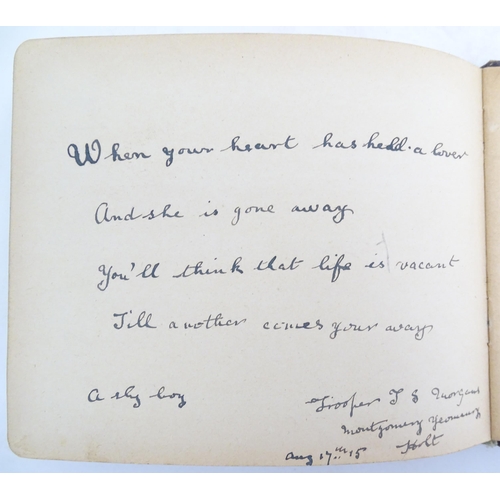 When your heart has held a lover
And she is gone away
You'll think that life is vacant
Till another comes your way
A shy boy
Trooper T E Morgans
Montgomery Yeomanry
Aug 17th 15 Holt